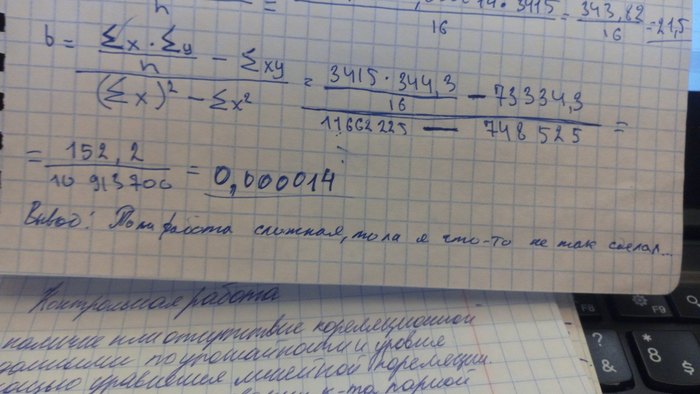 n = 14 · 3415 / 16 = 343,82 / 16 = 21,5
b = (Σx · Σy / n − Σxy) / ((Σx)² − Σx²) = (3415 · 344,3 / 16 − 73334,3) / (11662225 − 748525) =
= 152,2 / 10 913700 = 0,000014
Вывод: работа сложная, я что-то не так сделал...
Контрольная работа
наличие или отсутствие кореляционной
по урожайности и уровня
уравнения линейной кореляции.
к-та парной
F8
?
&
*
8